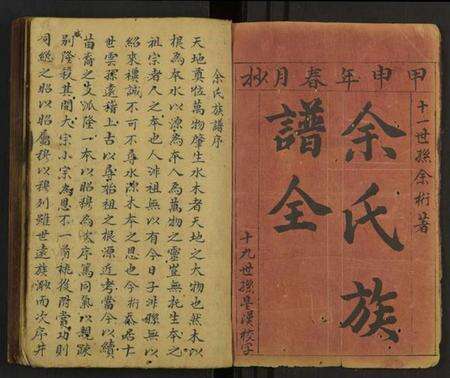 甲申年春月抄
十一世孫余珩著
余氏族
譜全
十九世孫學漢校字
余氏族譜序
天地奠位萬物肇生水木者天地之大物也然木以
根為本水以源為本人為萬物之靈豈無托生本之
祖宗者人之本也人非祖無以有今日子非孫無以
紹來誠不可不尊水源木本之思也今忝居仁
世雲孫遠稽上古以尋始祖之根源近考當今以續
苗裔之支派隆一本以昭穆為次序篤同氣以親疎
別隆殺其間大宗小宗為恩不一前祧後附賞功則
司總之昭以昭屬穆以穆列雖世遠族而次序井